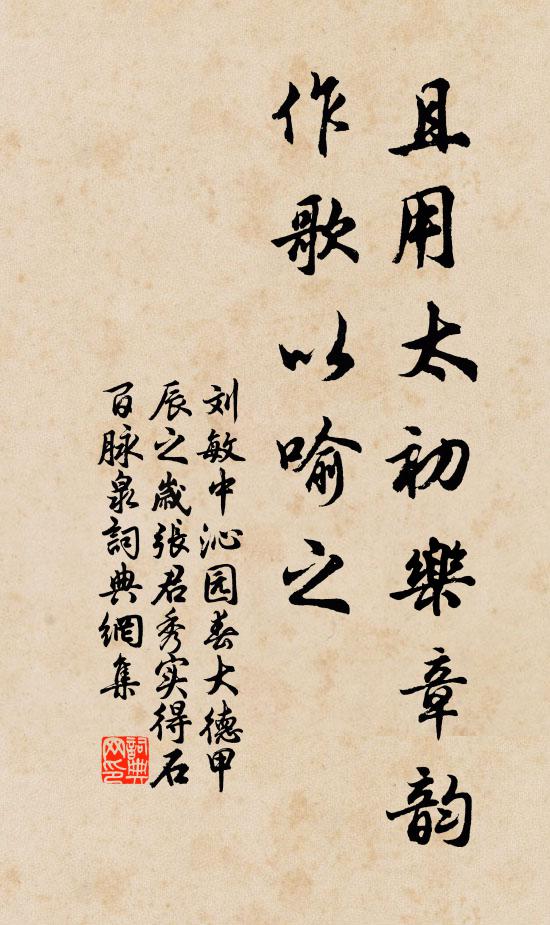 且用太初樂章韵
作歌以喻之
刘敏中沁园春大德甲
辰之歲張君秀实得石
百脉泉詞典網集
詞典
网印